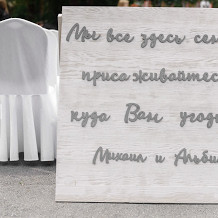 Мы все здесь сем
присаживайтес
куда Вам угод
Михаил и Альби